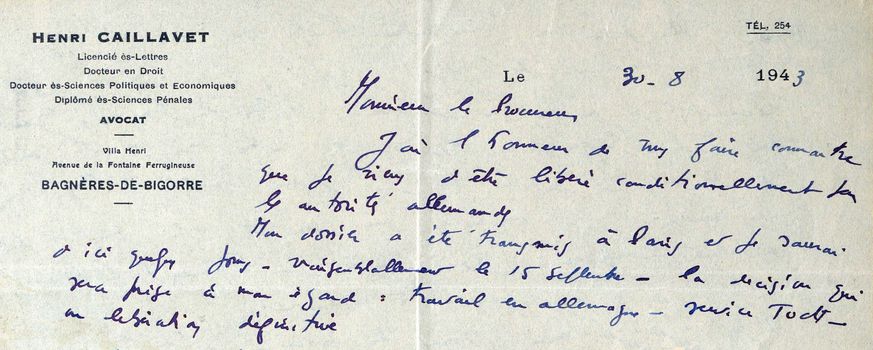 HENRI CAILLAVET
Licencié ès-Lettres
Docteur en Droit
Docteur ès-Sciences Politiques et Economiques
Diplômé ès-Sciences Pénales
AVOCAT
Villa Henri
Avenue de la Fontaine Ferrugineuse
BAGNÈRES-DE-BIGORRE
TÉL. 254
Le 30-8 1943
Monsieur le Procureur,
J'ai l'honneur de vous faire connaître
que je viens d'être libéré conditionnellement par
les autorités allemandes
Mon dossier a été transmis à Paris et je saurai
d'ici quelques jours - vraisemblablement le 15 septembre - la décision qui
sera prise à mon égard : travail en allemagne - service Todt -
ou libération définitive